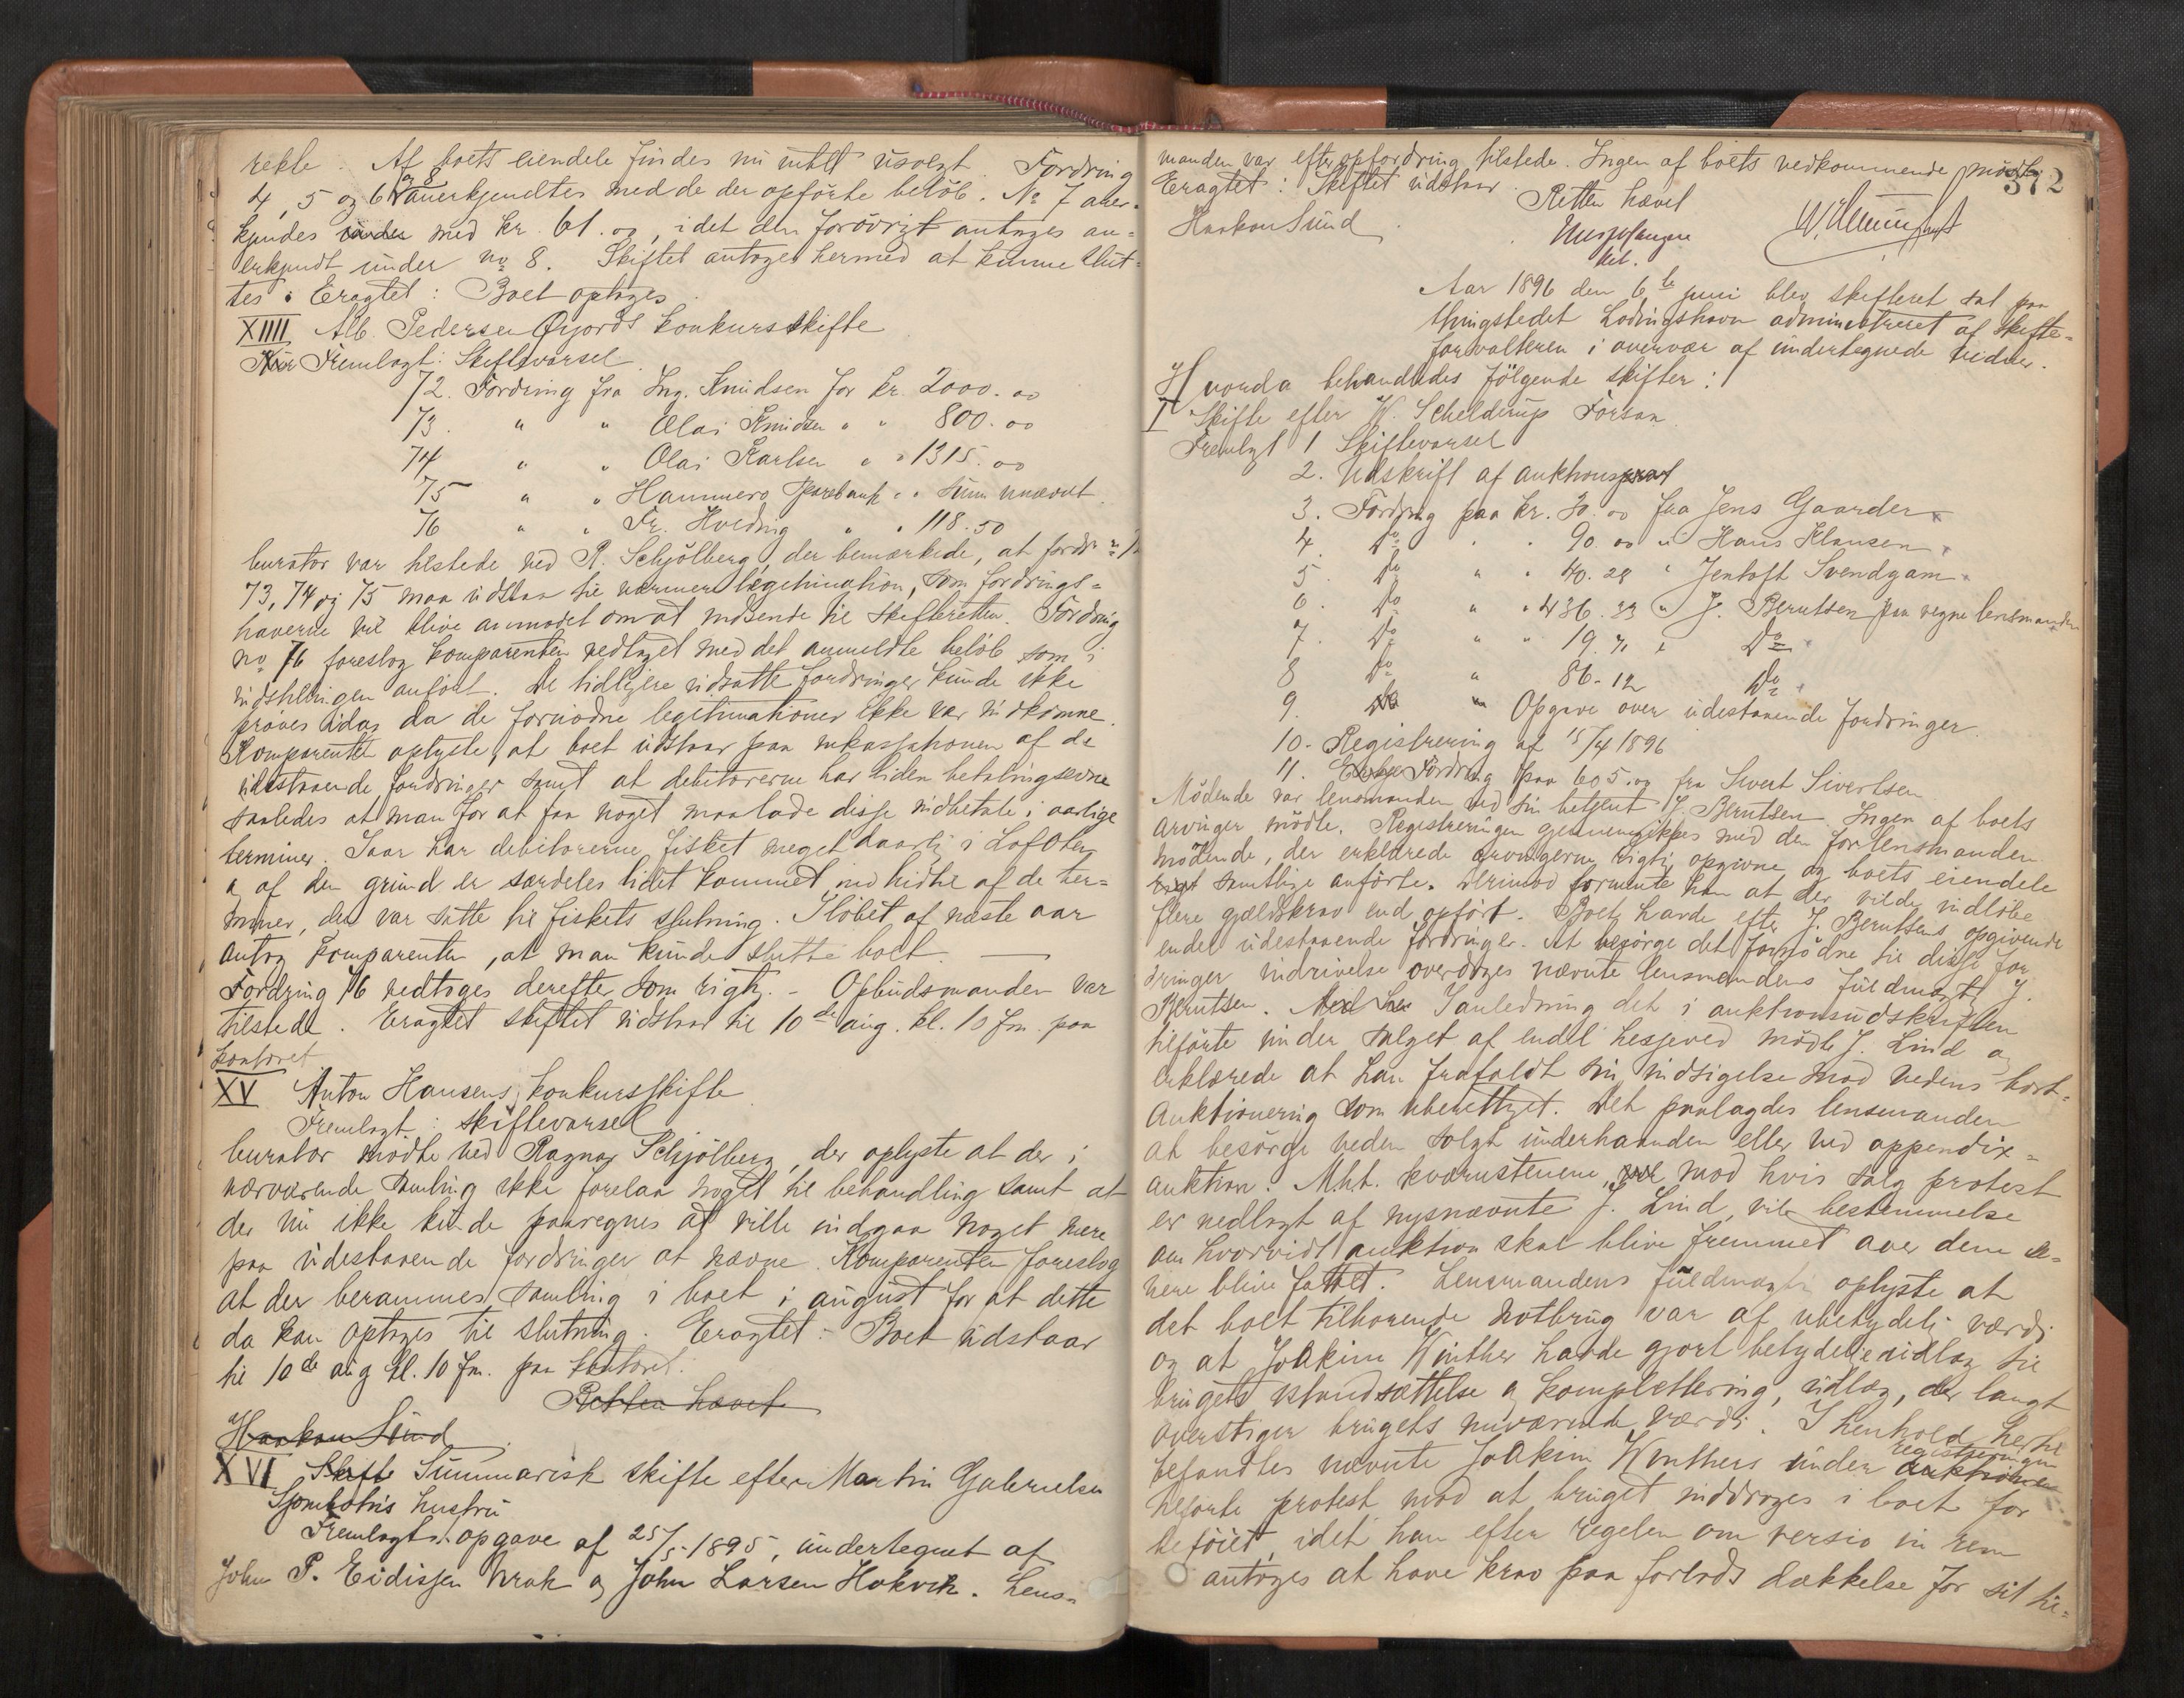 rekle. Af boets eiendele findes nu intet usolgt. Fordring
4, 5 og 6 og 8 anerkjendtes med de der opførte beløb. No 7 aner-
kjendes med kr. 61.00, idet den forøvrigt antages an-
erkjendt under no 8. Skiftet antages hermed at kunne slut-
tes. Eragtet: Boet optages.
XIIII Alb. Pedersen Øijords konkursskifte
Fremlagt: Skiftevarsel.
72. Fordring fra Ing. Knudsen for kr. 2000.00
73. " " Olai Knudsen " " 800.00
74 " " Olai Karlsen " " 1315.00
75 " " Hammerø Sparebank " " sum unævnt.
76 " " Fr. Hveding " " 118.50
Curator var tilstede ved R. Schjølberg, der bemærkede, at fordr. no 72
73, 74 og 75 maa udstaa til nærmere legitimation, som fordrings-
haverne vil blive anmodet om at indsende til skifteretten. Fordring
no 76 foreslog komparenten vedtaget med det anmeldte beløb som i
indstillingen anført. De tidligere udsatte fordringer kunde ikke
prøves idag da de fornødne legitimationer ikke var indkomne.
Komparenten oplyste, at boet udstaar paa inkassationen af de
udestaaende fordringer samt at debitorerne har liden betalingsevne
saaledes at man for at faa noget maa lade disse indbetale i aarlige
terminer. Iaar har debitorerne fisket meget daarlig i Lofoten
og af den grund er særdeles lidet kommet ind hidtil af de ter-
miner, der var satte til fiskets slutning. I løbet af næste aar
antog komparenten, at man kunde slutte boet.
Fordring 76 vedtoges derefter som rigtig. - Opbudsmanden var
tilstede. Eragtet skiftet udstaar til 10de aug. kl. 10 fm. paa
kontoret
XV Anton Hansens konkursskifte
Fremlagt: skiftevarsel
Curator mødte ved Ragnar Schjølberg, der oplyste at der i
nærværende samling ikke forelaa noget til behandling samt at
der nu ikke kunde paaregnes at ville indgaa noget mere
paa udestaaende fordringer at nævne. Komparenten foreslog
at der berammes samling i boet i august for at dette
da kan optages til slutning. Eragtet: - Boet udstaar
til 10de aug kl. 10 fm. paa kontoret.
Retten hævet
Haakon Sund
XVI Skifte Summarisk skifte efter Martin Gabrielsen
Sjombotns hustru
Fremlagt: opgave af 25/5 1895, undertegnet af
John P. Eidissen Vrak og John Larsen Hokvik. Lens-
372
manden var efter opfordring tilstede. Ingen af boets vedkommende mødte
Eragtet: Skiftet udstaar.
Retten hævet
Haakon Sund
Aar 1896 den 6te juni blev skifteret sat paa
thingstedet Lødingshavn administreret af skifte-
forvalteren i overvær af undertegnede vidner.
Hvorda behandledes følgende skifter:
I Skifte efter W. Schelderup Forsan
Fremlagt 1 Skiftevarsel
2. Udskrift af auktionsprot
3. Fordring paa kr. 30.00 fra Jens Gaarder
4. Do " " 90.00 " Hans Klausen
5. Do " " 40.28 " Jentoft Svendgam
6. Do " " 436.33 " J. Berntsen paa vegne lensmanden
7. Do " " 19.71 " Do
8 Do " 86.12 Do
9. Opgave over udestaaende fordringer.
10. Registrering af 15/4 1896
11. Fordring paa 605.00 fra Sivert Sivertsen
Mødende var lensmanden ved sin betjent J. Berntsen. Ingen af boets
arvinger mødte. Registreringen gjennemgikkes med den for lensmanden
mødende, der erklærede arvingerne rigtig opgivne og boets eiendele
samtlige anførte. Derimod formente han at der vilde indløbe
flere gældskrav end opført. Boet havde efter J. Berntsens opgivende
endel udestaaende fordringer. At besørge det fornødne til disse for
dringer inddrivelse overdrages nævnte lensmandens fuldmægtig J.
Berntsen. I anledning det i auktionsudskriften
tilførte under salget af endel hesjeved mødte J. Lind og
erklærede at han frafaldt sin indsigelse mod vedens bort-
auktionering som uberettiget. Det paalagdes lensmanden
at besørge veden solgt underhaanden eller ved appendix-
auktion. M.h.t. kværnstenene, mod hvis salg protest
er nedlagt af nysnævnte J. Lind, vil bestemmelse
om hvorvidt auktion skal blive fremmet over dem se-
nere blive fattet. Lensmandens fuldmægtig oplyste at
det boet tilhørende notbrug var af ubetydelig værdi
og at Joakim Winther havde gjort betydelige udlæg til
brugets istandsættelse og komplettering, udlæg, der langt
overstiger brugets nuværende værdi. I henhold hertil
befandtes nævnte Joakim Winthers under registreringen auktionen
tilførte protest mod at bruget inddrages i boet for
beføiet, idet han efter regelen om versio in rem
antages at have krav paa forlods dækkelse for sit til-